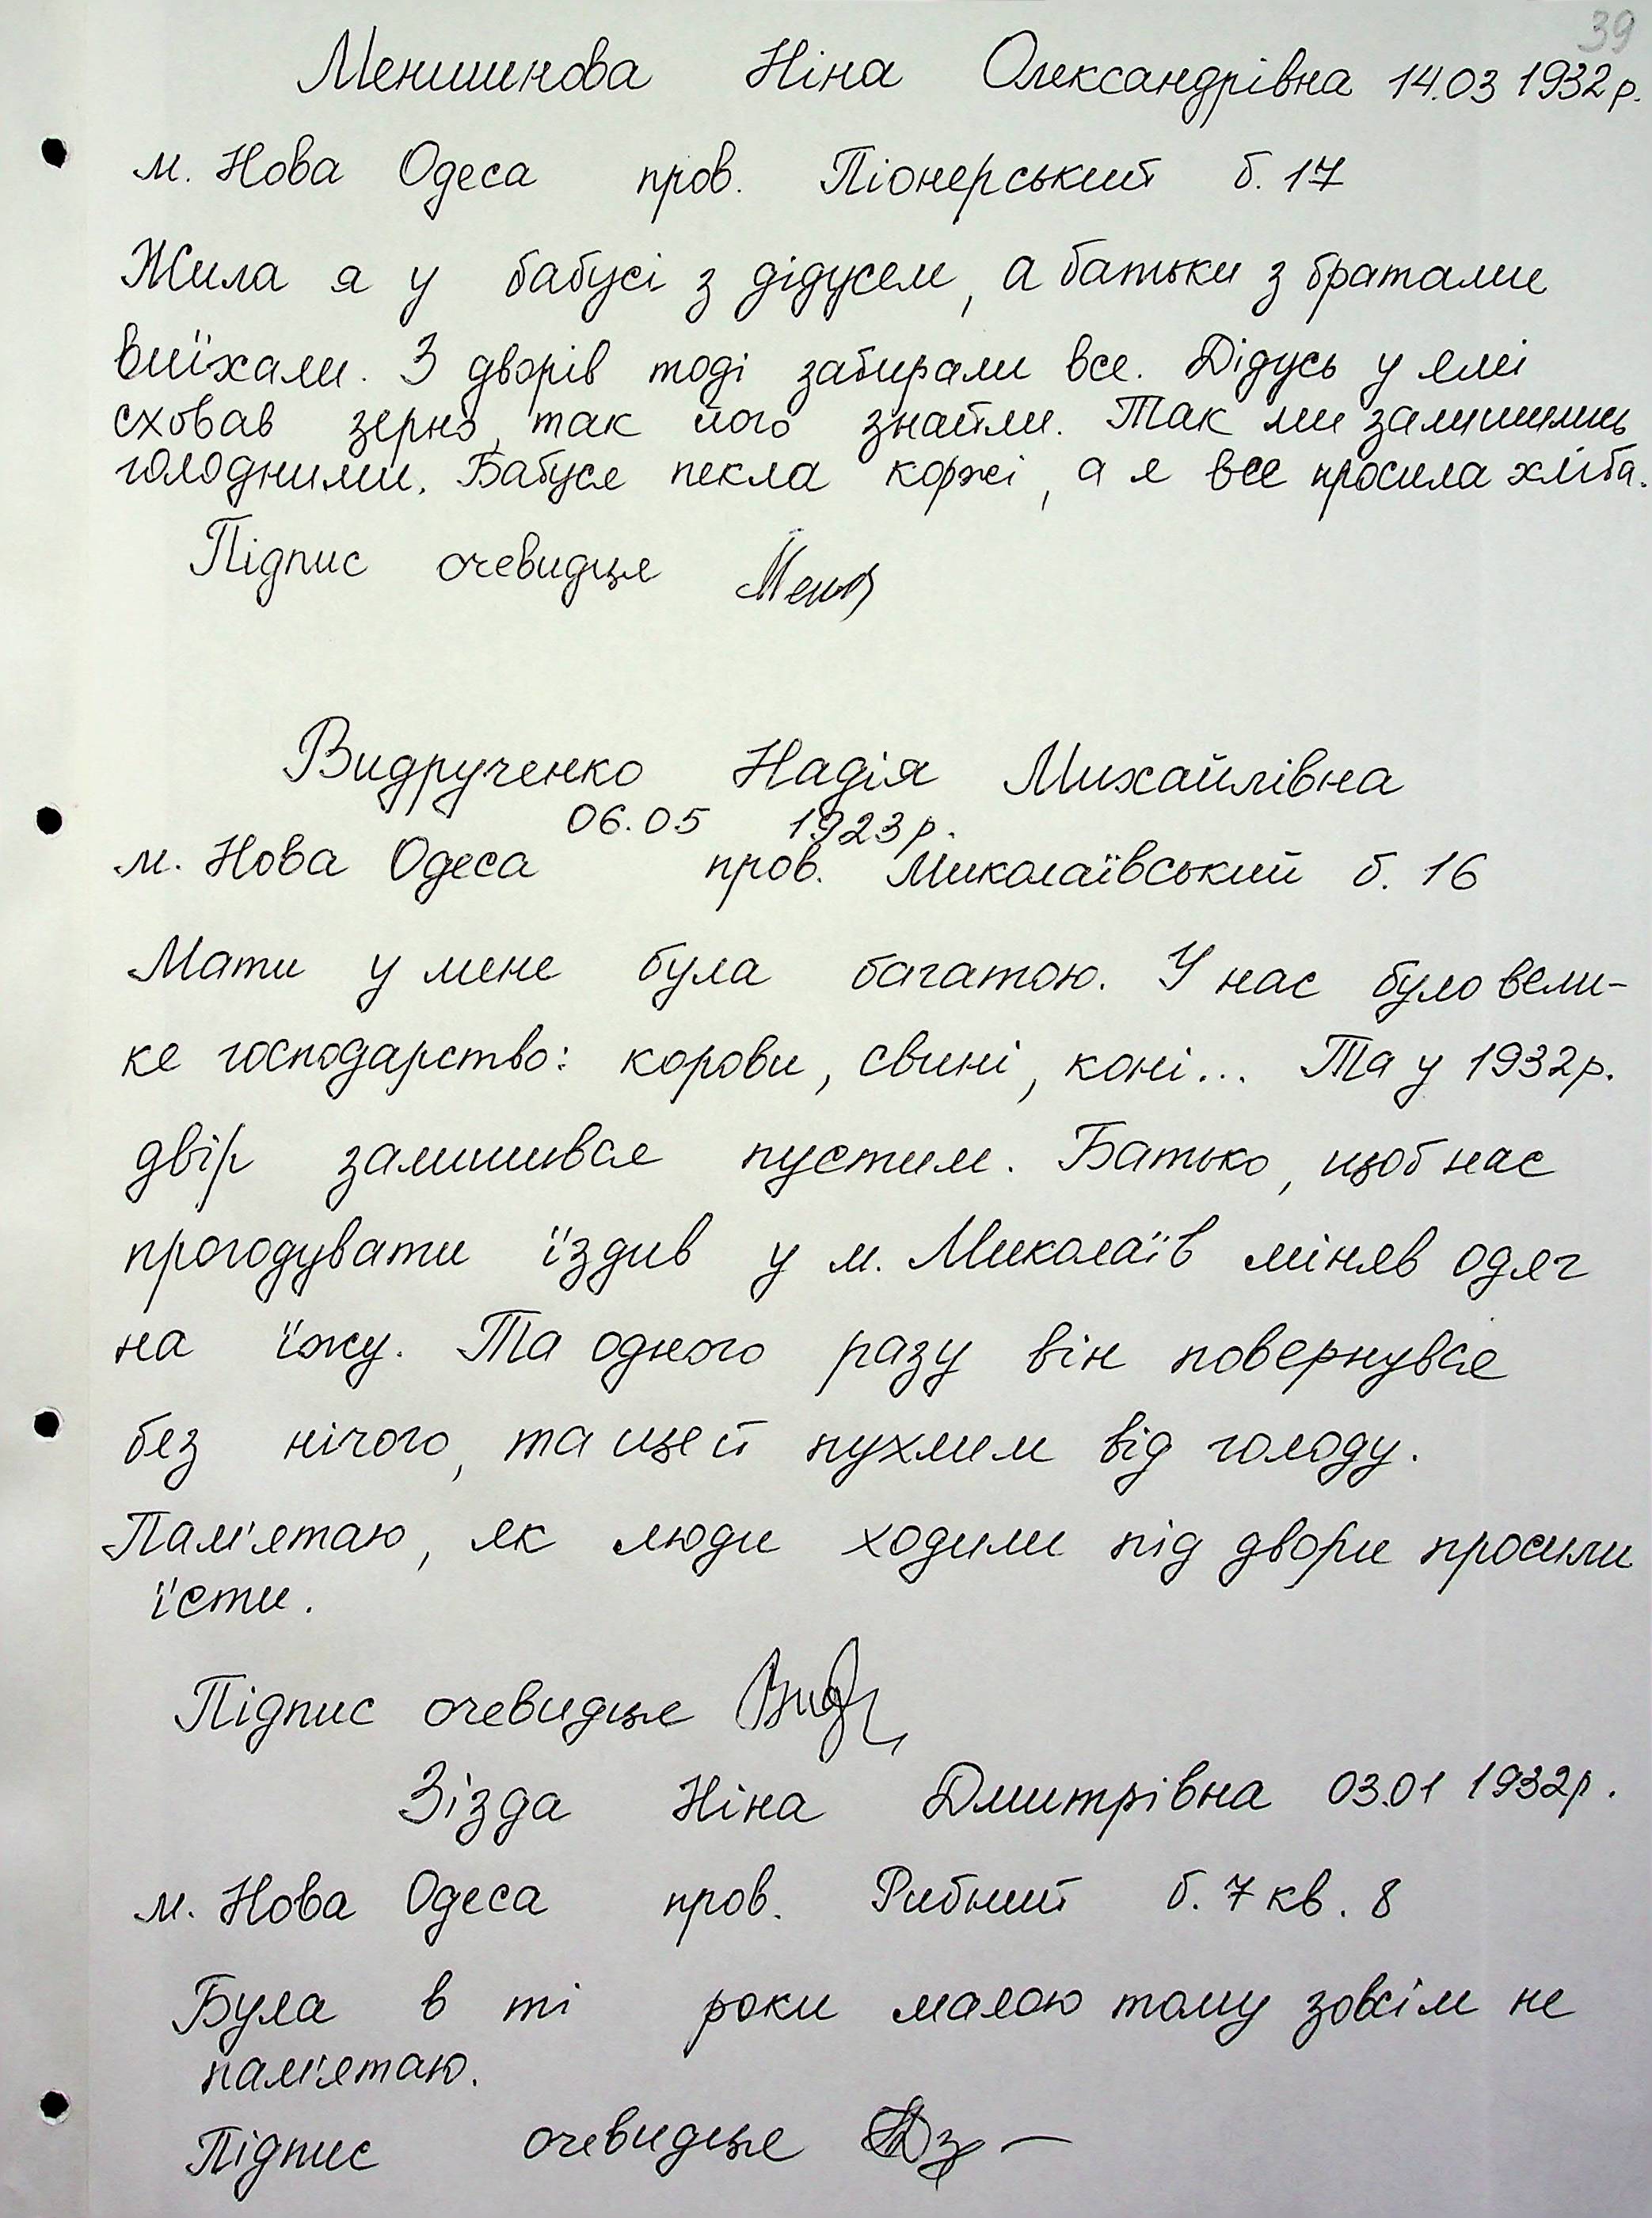 39
Меншикова Ніна Олександрівна 14.03 1932р.
м. Нова Одеса пров. Піонерський б. 17
Жила я у бабусі з дідусем, а батьки з братами
виїхали. З дворів тоді забирали все. Дідусь у ямі
сховав зерно, так його знайшли. Так ми залишились
голодними. Бабуся пекла коржі, а я все просила хліба.
Підпис очевидця
Видрученко Надія Михайлівна
06.05 1923р.
м. Нова Одеса пров. Миколаївський б. 16
Мати у мене була багатою. У нас було вели-
ке господарство: корови, свині, коні... Та у 1932р.
двір залишився пустим. Батько, щоб нас
прогодувати їздив у м. Миколаїв міняв одяг
на їжу. Та одного разу він повернувся
без нічого, та ще й пухлим від голоду.
Пам'ятаю, як люди ходили під двори просили
їсти.
Підпис очевидця
Зізда Ніна Дмитрівна 03.01 1932р.
м. Нова Одеса пров. Рибний б. 7 кв. 8
Була в ті роки малою тому зовсім не
пам'ятаю.
Підпис очевидця